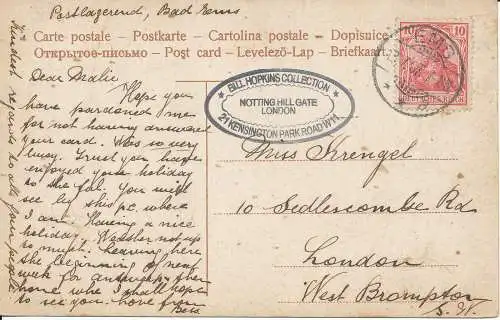 Postlagerend, Bad Ems
Carte postale - Postkarte - Cartolina postale - Dopisnice
Открытое-письмо - Post card - Levelező-Lap - Briefkaart
10 10
DEUTSCHES REICH
EMS
BILL HOPKINS COLLECTION
NOTTING HILL GATE
LONDON
21 KENSINGTON PARK ROAD W11
Dear
Hope you
have pardoned me
for not having answered
your card. Was so very
busy. Trust you have
enjoyed your holiday
to the full. You will
see by this p.c. where
I am. Having a nice
holiday. Weather not up
to much. Leaving here
the beginning of next
week for
home who I shall hope
to see you. Love from
Bess
Kindest regards to all your people
Miss Krengel
10 Sedlescombe Rd
London
West Brompton
S.W.